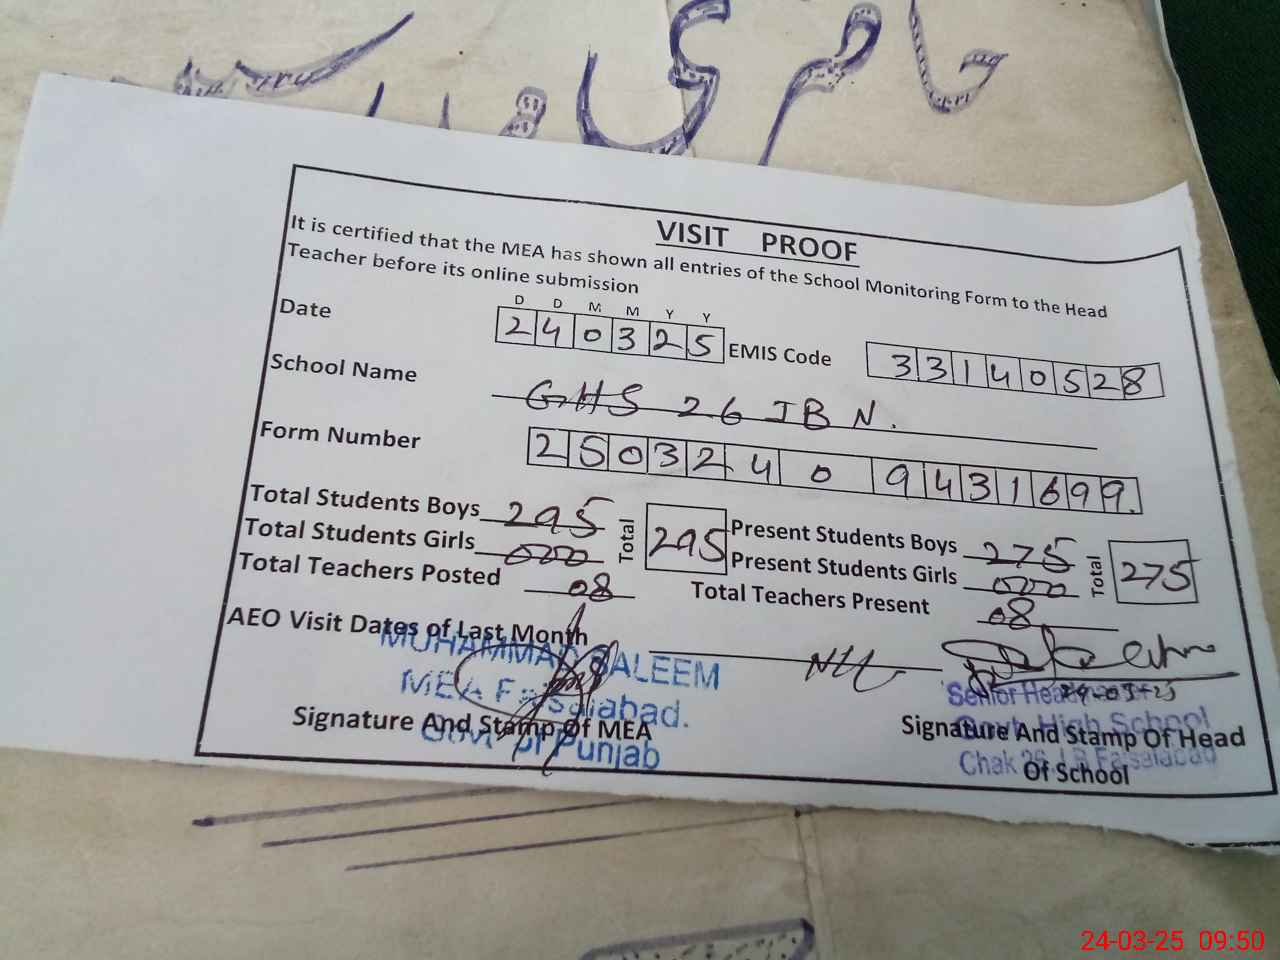 حاضری مدرسین
VISIT PROOF
It is certified that the MEA has shown all entries of the School Monitoring Form to the Head
Teacher before its online submission
D D M M Y Y
Date 240325 EMIS Code 33140528
School Name GHS 26 JB N.
Form Number 25032409431699.
Total Students Boys 295 Total 295 Present Students Boys 275 Total 275
Total Students Girls 000 Present Students Girls 000
Total Teachers Posted 08 Total Teachers Present 08
AEO Visit Dates of Last Month Nil
MUHAMMAD SALEEM
MEA Faisalabad.
Govt of Punjab
Signature And Stamp Of MEA
24-03-25
Senior Head
Govt. High School
Chak 26 J.B Faisalabad
Signature And Stamp Of Head
Of School
24-03-25 09:50